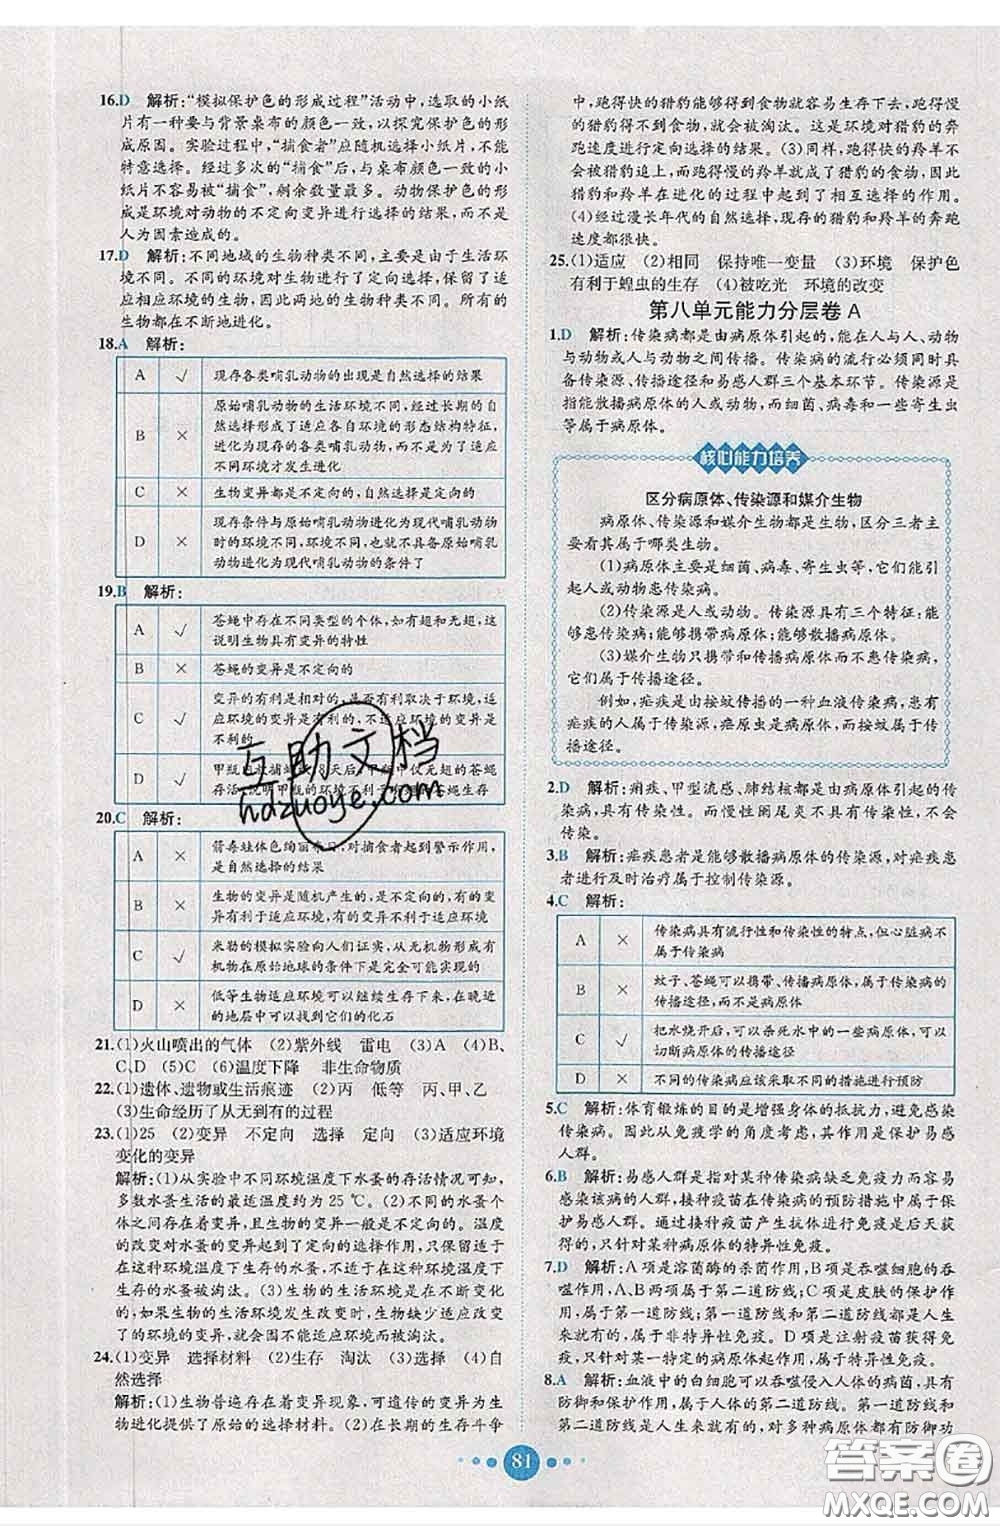 16.D 解析:“模拟保护色的形成过程”活动中,选取的小纸
片有一种要与背景桌布的颜色一致,以探究保护色的形
成原因。实验过程中,“捕食者”应随机选择小纸片,不能
特意选择。经过多次的“捕食”后,与桌布颜色一致的小
纸片不容易被“捕食”,剩余数量最多。动物保护色的形
成是环境对动物的不定向变异进行选择的结果,而不是
人为因素造成的。
17.D 解析:不同地域的生物种类不同,主要是由于生活环
境不同。不同的环境对生物进行了定向选择,保留了适
应相应环境的生物,因此两地的生物种类不同。所有的
生物都在不断地进化。
18.A 解析:
A √ 现存各类哺乳动物的出现是自然选择的结果
B × 原始哺乳动物的生活环境不同,经过长期的自然
选择,形成了适应各自环境的形态结构特征,
进化为现存的各类哺乳动物,而不是为了适应
不同环境才发生进化
C × 生物变异都是不定向的,自然选择是定向的
D × 现存条件与原始哺乳动物进化为现代哺乳动物
时的环境不同,环境不同,也就不具备原始哺乳动
物进化为现代哺乳动物的条件了
19.B 解析:
A √ 苍蝇中存在不同类型的个体,如有翅和无翅,这
说明生物具有变异的特性
B × 苍蝇的变异是不定向的
C √ 变异的有利是相对的,是否有利取决于环境,适
应环境的变异是有利的,不适应环境的变异是
不利的
D √ 甲瓶内放捕蝇纸8天后,甲瓶中仅无翅的苍蝇
存活,说明甲瓶的环境不利于有翅的苍蝇生存
20.C 解析:
A × 箭毒蛙体色绚丽夺目,对捕食者起到警示作用,
是自然选择的结果
B × 生物的变异是随机产生的,是不定向的,有的变
异有利于适应环境,有的变异不利于适应环境
C √ 米勒的模拟实验向人们证实,从无机物形成有
机物在原始地球的条件下是完全可能实现的
D × 低等生物适应环境可以继续生存下来,在晚近
的地层中可以找到它们的化石
21.(1)火山喷出的气体 (2)紫外线 雷电 (3)A (4)B、
C、D (5)C (6)温度下降 非生命物质
22.(1)遗体、遗物或生活痕迹 (2)丙 低等 丙、甲、乙
(3)生命经历了从无到有的过程
23.(1)25 (2)变异 不定向 选择 定向 (3)适应环境
变化的变异
解析:(1)从实验中不同环境温度下水蚤的存活情况可知,
多数水蚤生活的最适温度约为 25 ℃。(2)不同的水蚤个
体之间存在着变异,且生物的变异一般是不定向的。温度
的改变对水蚤的变异起到了定向的选择作用,只保留适于
在这种环境下生存的水蚤,不适于在这种环境温度下生
存的水蚤被淘汰。(3)水蚤的生活环境是在不断变化
的,如果生物的生活环境发生改变时,生物缺少适应改变
了的环境的变异,就会因不能适应环境而被淘汰。
24.(1)变异 选择材料 (2)生存 淘汰 (3)选择 (4)自
然选择
解析:(1)生物普遍存在着变异现象,可遗传的变异为生
物进化提供了原始的选择材料。(2)在长期的生存斗争
中,跑得快的猎豹能够得到食物就容易生存下去,跑得慢
的猎豹得不到食物,就会被淘汰。这是环境对猎豹的奔
跑速度进行定向选择的结果。(3)同样,跑得慢的羚羊不
会被猎豹追上,而跑得慢的羚羊就成了猎豹的食物,因此
猎豹和羚羊在进化的过程中起到了相互选择的作用。
(4)经过漫长年代的自然选择,现存的猎豹和羚羊的奔跑
速度都很快。
25.(1)适应 (2)相同 保持唯一变量 (3)环境 保护色
有利于蝗虫的生存 (4)被吃光 环境的改变
第八单元能力分层卷 A
1.D 解析:传染病都是由病原体引起的,能在人与人、动物
与动物或人与动物之间传播。传染病的流行必须同时具
备传染源、传播途径和易感人群三个基本环节。传染源是
指能散播病原体的人或动物,而细菌、病毒和一些寄生虫
等属于病原体。
核心能力培养
区分病原体、传染源和媒介生物
病原体、传染源和媒介生物都是生物,区分三者主
要看其属于哪类生物。
(1)病原体主要是细菌、病毒、寄生虫等,它们能引
起人或动物患传染病。
(2)传染源是人或动物。传染源具有三个特征:能
够患传染病;能够携带病原体;能够散播病原体。
(3)媒介生物只携带和传播病原体而不患传染病,
它们属于传播途径。
例如,疟疾是由按蚊传播的一种血液传染病,患有
疟疾的人属于传染源,疟原虫是病原体,而按蚊属于传
播途径。
2.D 解析:痢疾、甲型流感、肺结核都是由病原体引起的传
染病,具有传染性。而慢性阑尾炎不具有传染性,不会
传染。
3.B 解析:疟疾患者是能够散播病原体的传染源,对疟疾患
者进行及时治疗属于控制传染源。
4.C 解析:
A × 传染病具有流行性和传染性的特点,但心脏病不
属于传染病
B × 蚊子、苍蝇可以携带、传播病原体,属于传染病的
传播途径,而不是病原体
C √ 把水烧开后,可以杀死水中的一些病原体,可以
切断部分传染病的传播途径
D × 不同的传染病应该采取不同的措施进行预防
5.C 解析:体育锻炼的目的是增强身体的抵抗力,避免感染
传染病。因此从免疫学的角度考虑,其作用是保护易感
人群。
6.B 解析:易感人群是指对某种传染病缺乏免疫力而容易
感染该病的人群,接种疫苗在传染病的预防措施中属于保
护易感人群。通过接种疫苗产生抗体进行免疫是后天获
得的,只针对某种病原体的特异性免疫。
7.D 解析:A项是溶菌酶的杀菌作用,B项是吞噬细胞的吞
噬作用,A、B两项属于第二道防线;C项是皮肤的保护作
用,属于第一道防线;第一道防线和第二道防线都是人生
来就有的,属于非特异性免疫。D项是注射疫苗获得免
疫,只针对某一特定的病原体起作用,属于特异性免疫。
8.A 解析:血液中的白细胞可以吞噬侵入人体的病菌,具有
防御和保护作用,属于人体的第二道防线。第一道防线和
第二道防线是人生来就有的,对多种病原体都有防御功
81
互助文档
hdzuoye.com
答案圈
MXQE.COM